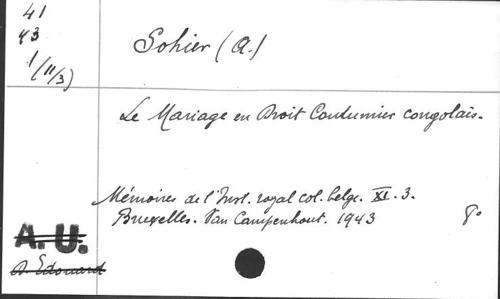 41
43
1/(11/3)
Sohier (A.)
Le Mariage en Droit Coutumier congolais.
Mémoires de l'Inst. royal col. belge. XI. 3.
Bruxelles. Van Campenhout. 1943 8°
A.U.
D. Edouard